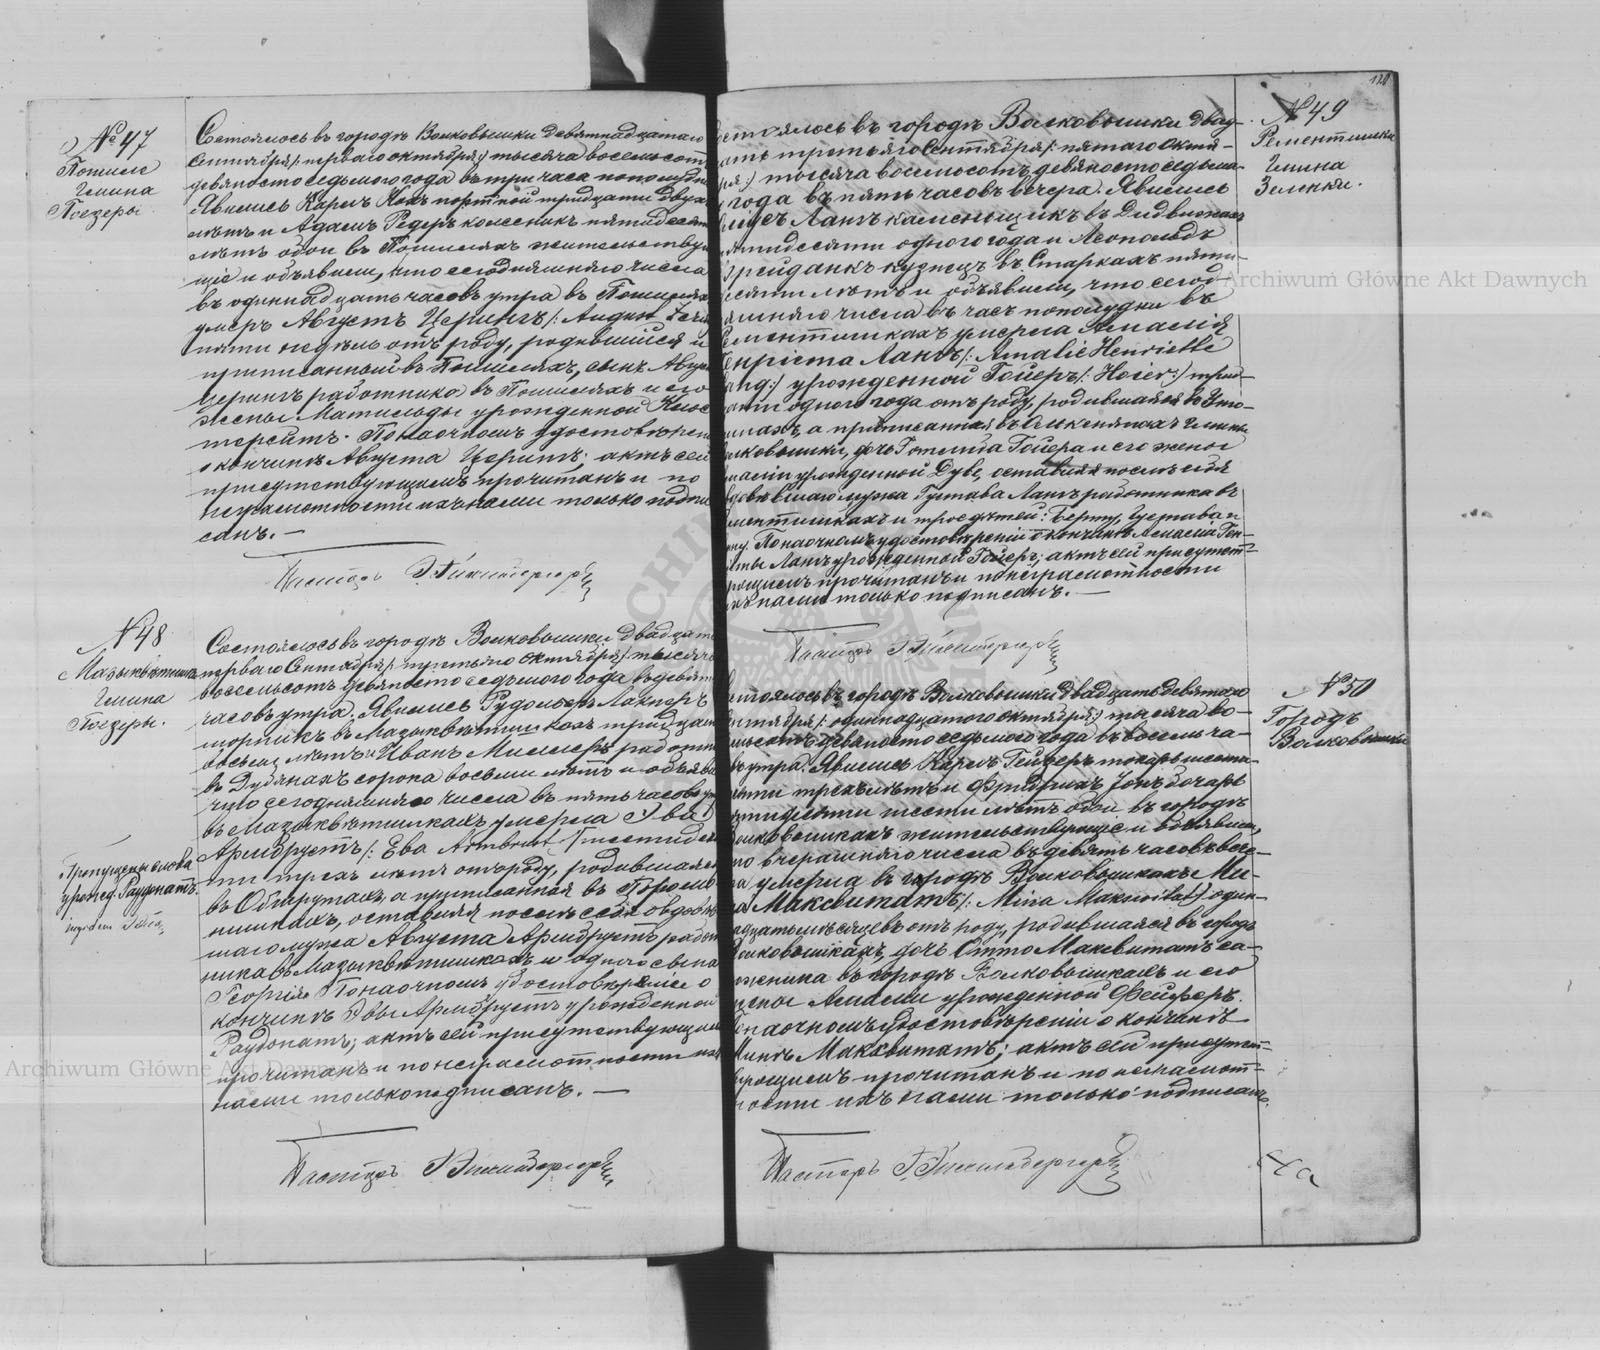 № 47
Пошиле
Гмина
Поезеры
Состоялось въ городѣ Волковышки девятнадцатаго
Сентября /: перваго октября :/ тысяча восемьсотъ
девяносто седьмаго года въ три часа пополудни
Явились Карлъ Кохъ портной тридцати двухъ
лѣтъ и Адамъ Редеръ колесникъ пятидесяти
лѣтъ обои въ Пошиляхъ жительствую-
щіе и объявили, что сегодняшняго числа
въ одиннадцать часовъ утра въ Пошиляхъ
умеръ Августъ Церингъ /:
пяти недѣль отъ роду, родившійся и
приписанный въ Пошиляхъ, сынъ Августа
Церингъ работника въ Пошиляхъ и его
жены Матильды урожденной Клос-
терейтъ. По наочномъ удостовѣреніи
о кончинѣ Августа Церингъ; актъ сей
присутствующимъ прочитанъ и по
неграмотности ихъ нами только подпи-
санъ. —
Пасторъ
№ 48
Мазыквѣтишки
Гмина
Поезеры.
Состоялось въ городѣ Волковышки двадцать
перваго Сентября /: третьяго октября :/ тысяча
восемьсотъ девяносто седьмого года въ девять
часовъ утра. Явились Рудольфъ Лакнеръ
шорникъ въ Мазыквѣтишкахъ тридцати
восьми лѣтъ и Иванъ Миллеръ работникъ
въ Дубянахъ сорока восьми лѣтъ и объявили
что сегодняшняго числа въ пять часовъ утра
въ Мазыквѣтишкахъ умерла Эва
Армбрустъ /: Ева Armbrust :/ шестидеся-
ти трехъ лѣтъ отъ роду, родившаяся
въ Обшрутахъ, а приписанная въ
нишкахъ, оставивъ послѣ себя овдовѣв-
шаго мужа Августа Армбрустъ работ-
ника въ Мазыквѣтишкахъ и одного сына
Георгія. По наочномъ удостовѣреніи о
кончинѣ Эвы Армбрустъ урожденной
Раудонатъ; актъ сей присутствующимъ
прочитанъ и по неграмотности ихъ
нами только подписанъ. —
Пропущены слова
урожд. Раудонатъ
Пасторъ
120
№ 49
Рементишки
Гмина
Зеленки.
Состоялось въ городѣ Волковышки двад-
цать третьяго Сентября /: пятаго Октя-
бря :/ тысяча восемьсотъ девяносто седьма-
го года въ пять часовъ вечера. Явились
Лангъ каменьщикъ въ Дидвижахъ
пятидесяти одного года и Леопольдъ
Фрейданкъ кузнецъ въ Старкахъ пяти-
десяти лѣтъ и объявили, что сегод-
няшняго числа въ часъ пополудни въ
Рементишкахъ умерла Амалія
Генріета Лангъ /: Amalie Henriette
Lang :/ урожденной Гойеръ /: Hoier :/ трид-
цати одного года отъ роду, родившаяся въ
а приписанная въ гмины
Волковышки, дочь Готлиба Гойера и его жены
Амаліи урожденной Дуве, оставивъ послѣ себя
овдовѣвшаго мужа Густава Лангъ работника въ
Рементишкахъ и трое дѣтей: Берту, Густава и
По наочномъ удостовѣреніи о кончинѣ Амаліи Ген-
ріеты Лангъ урожденной Гойеръ; актъ сей присутст-
вующимъ прочитанъ и по неграмотности
ихъ нами только подписанъ. —
Пасторъ
№ 50
Городъ
Волковышки
Состоялось въ городѣ Волковышки двадцать девятаго
Сентября /: одиннадцатого октября :/ тысяча во-
семьсотъ девяносто седьмого года въ восемь ча-
совъ утра. Явились Карлъ Гейзеръ токарь шести-
десяти трехъ лѣтъ и Фридрихъ Іонъ бочаръ
пятидесяти шести лѣтъ обои въ городѣ
Волковышкахъ жительствующіе и объявили,
что вчерашняго числа въ девять часовъ вече-
ра умерла въ городѣ Волковышкахъ Ми-
на Максвитатъ /: Mina Makswitat :/ один-
надцать мѣсяцевъ отъ роду, родившаяся въ городѣ
Волковышкахъ, дочь Отто Максвитатъ са-
пожника въ городѣ Волковышкахъ и его
жены Амаліи урожденной Фейферъ.
По наочномъ удостовѣреніи о кончинѣ
Мины Максвитатъ; актъ сей присутст-
вующимъ прочитанъ и по неграмот-
ности ихъ нами только подписанъ.
Пасторъ
Archiwum Główne Akt Dawnych
Archiwum Główne Akt Dawnych